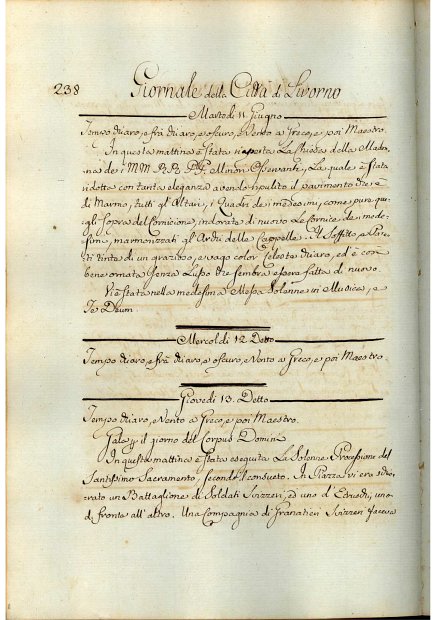 238
Giornale della Città di Livorno
Martedì 11 Giugno
Tempo chiaro, e frà chiaro, e oscuro, e Vento a Greco, e poi Maestro.
In questa mattina è stata riaperta la Chiesa della Madon
na de i MM. RR. PP. Minori Osservanti, la quale è stata
ridotta con tanta eleganza avendo ripulito il pavimento che è
di Marmo, tutti gl'Altari, i Quadri de i medesimi, come pure que
gli sopra del Cornicione, indorate di nuovo le Cornice de i mede
simi, marmorizzati gl'Archi delle Cappelle. Il Soffitto, e Pare
ti tinte di un grazioso, e vago color Celeste chiaro, ed è così
bene ornata senza Lusso che sembra essere fatta di nuovo.
Vi è stata nella medesima Messa Solenne in Musica, e
Te Deum.
Mercoldì 12. Detto
Tempo chiaro, e frà chiaro, e oscuro, Vento a Greco, e poi Maestro.
Giovedì 13. Detto
Tempo chiaro, Vento a Greco, e poi Maestro.
Gala p. il giorno del Corpus Domini
In questa mattina è stata eseguita la Solenne Procession del
Santissimo Sacramento, secondo il consueto. In Piazza vi era schie
rato un Battaglione di Soldati Svizzeri, ed uno d'Etruschi, uno
di fronte all'altro. Una Compagnia di Granatieri Svizzeri faceva